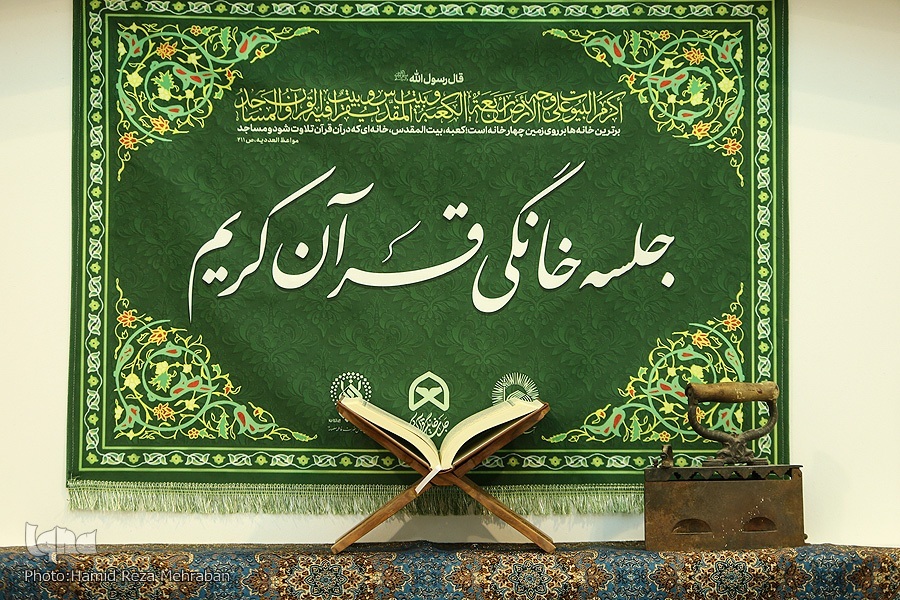 قال رسول الله ﷺ
اکرم البیوت علی وجه الارض اربعة: الکعبة و بیت المقدس و بیت یقرأ فیه القرآن و المساجد
برترین خانه‌ها بر روی زمین چهار خانه است؛ کعبه، بیت المقدس، خانه‌ای که در آن قرآن تلاوت شود و مساجد
مواعظ العددیه، ص ۲۱۱
جلسه خانگی قرآن کریم
iqna
Photo: Hamid Reza Mehraban